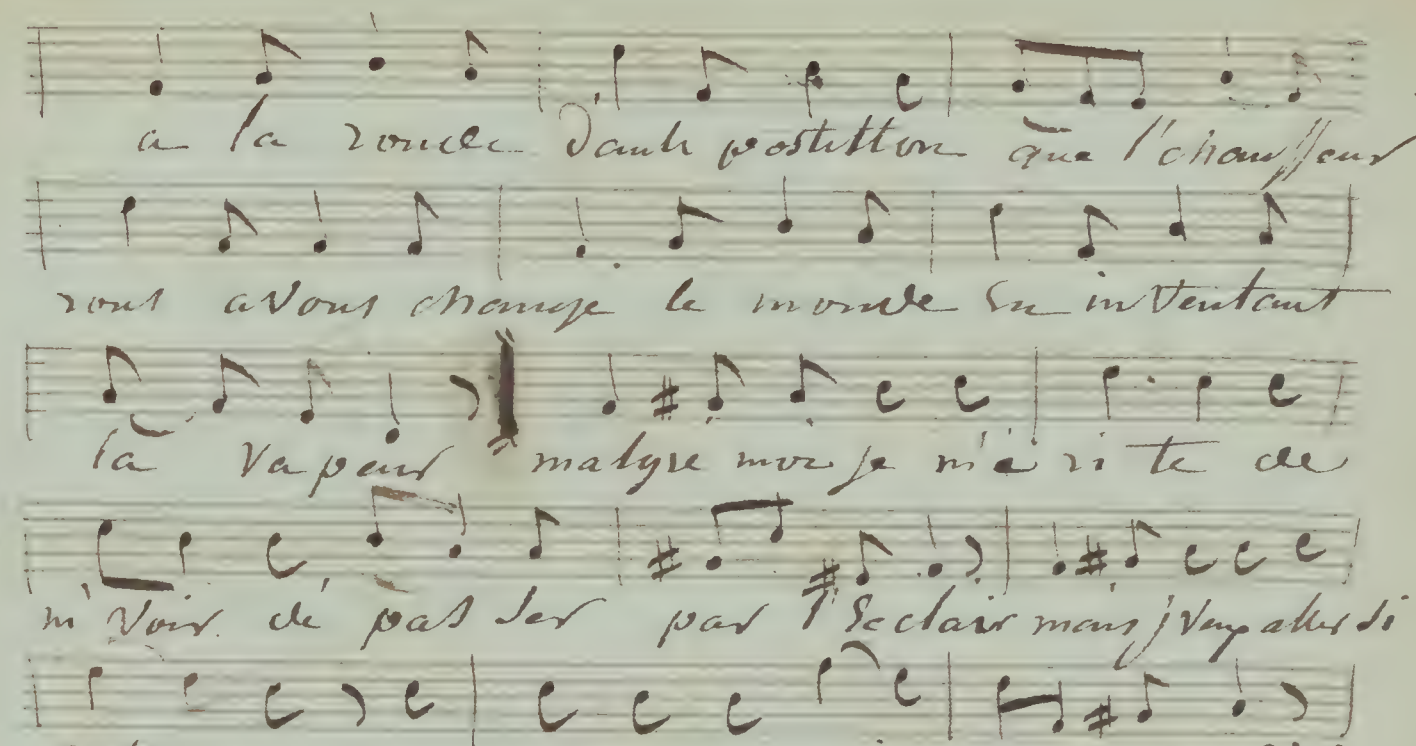 a la ronde d'autr postillon que l'chauffeur
nous avons change le monde en inventant
la vapeur malgre moi je m'e ri te de
m'voir de pas ser par l'Eclair mais j'veux aller si